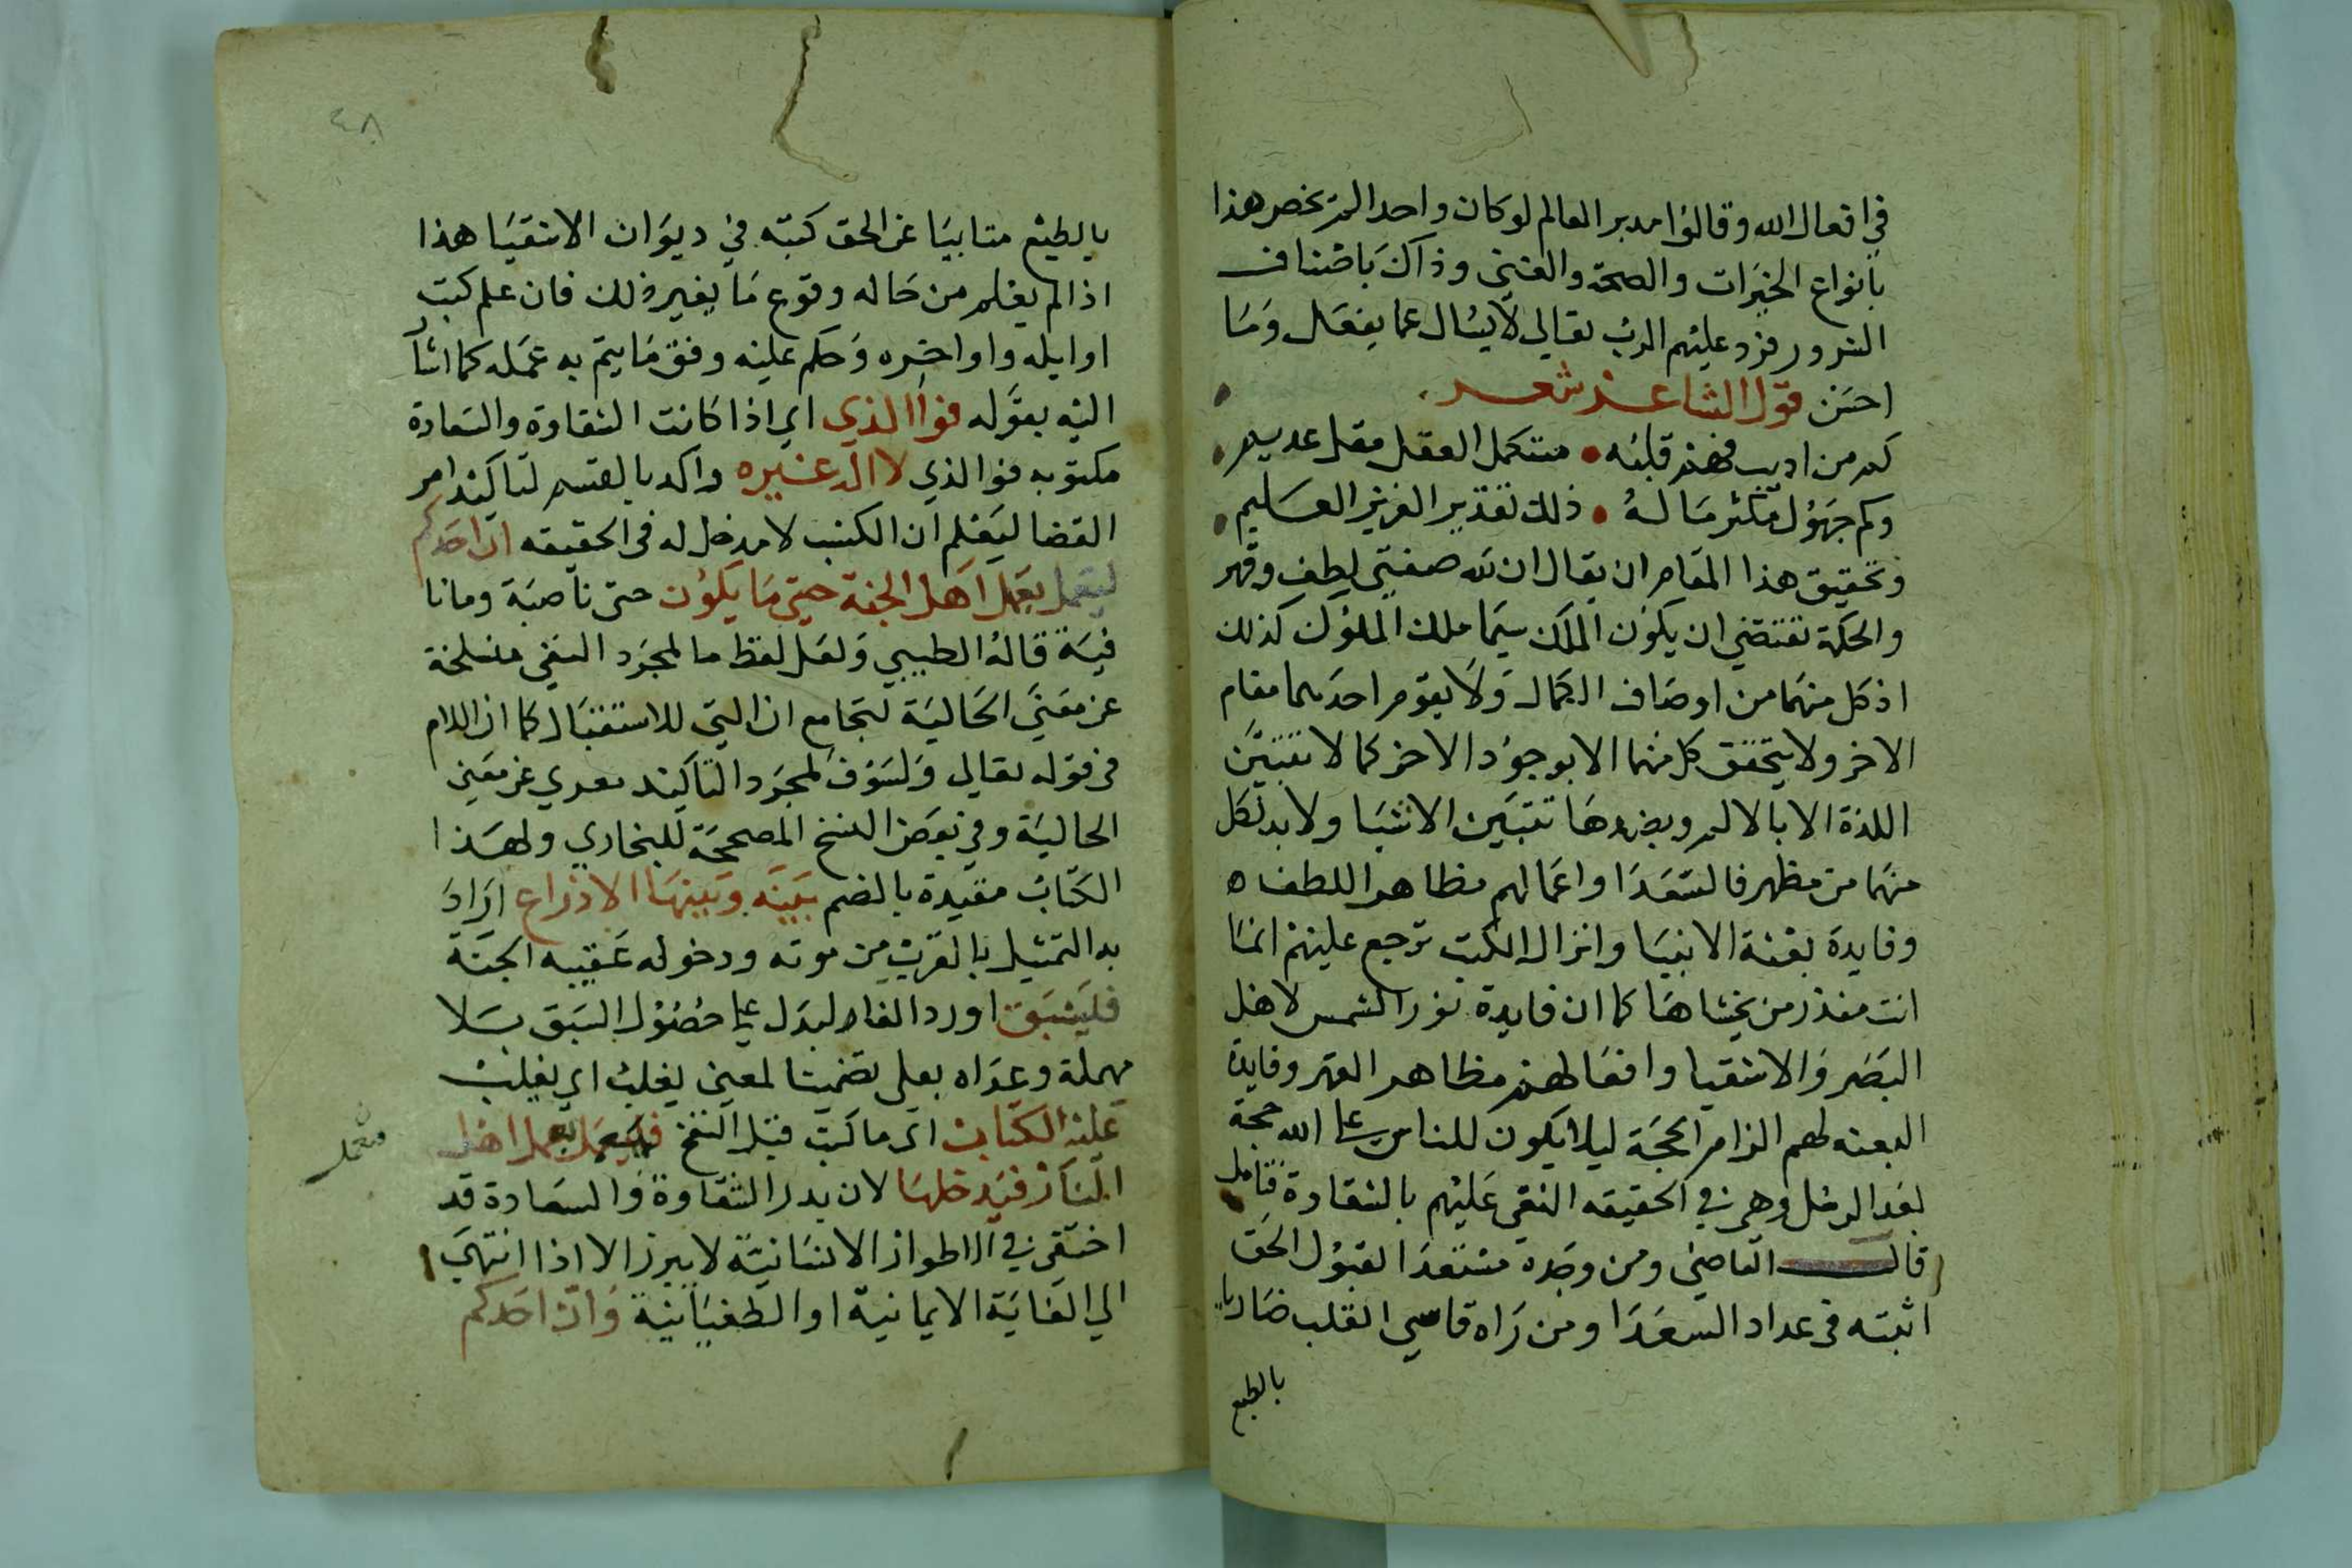 في افعال الله وقالوا مدبر العالم لو كان واحدا لم يخص هذا
بانواع الخيرات والصحة والغني وذاك باصناف
الشرور فرد عليهم الرب تعالى لا يسال عما يفعل وما
احسن قول الشاعر شعر
كم من اديب فهم قلبه • مستكمل العقل مقل عديم •
وكم جهول مكثر ماله • ذلك تقدير العزيز العليم •
وتحقيق هذا المقام ان يقال ان لله صفتي لطف وقهر
والحكمة تقتضي ان يكون الملك سيما ملك الملوك كذلك
اذ كل منهما من اوصاف الكمال ولا يقوم احدهما مقام
الاخر ولا يتحقق كل منهما الا بوجود الاخر كما لا تتبين
اللذة الا بالالم وبضدها تتبين الاشيا ولا بد لكل
منهما من مظهر فالسعدا واعمالهم مظاهر اللطف ه
وفايدة بعثة الانبيا وانزال الكتب ترجع عليهم انما
انت منذر من يخشاها كما ان فايدة نور الشمس لاهل
البصر والاشقيا وافعالهم مظاهر القهر وفايدة
البعثه لهم الزام الحجة ليلا يكون للناس على الله حجة
بعد الرسل وهي في الحقيقه النعي عليهم بالشقاوة فتامل
قال القاضي ومن وجده مستعدا لقبول الحق
اثبته في عداد السعدا ومن راه قاسي القلب ضاريا
بالطبع
٤٨
بالطبع متابيا عن الحق كتبه في ديوان الاشقيا هذا
اذا لم يعلم من حاله وقوع ما يغير ذلك فان علم كتب
اوايله واواخره وحكم عليه وفق ما يتم به عمله كما اشار
اليه بقوله فوالذي اي اذا كانت الشقاوة والسعادة
مكتوبه فوالذي لا اله غيره واكد بالقسم لتاكيد امر
القضا ليعلم ان الكسب لا مدخل له في الحقيقه ان احدكم
ليعمل بعمل اهل الجنة حتى ما يكون حتى ناصبة وما نا
فية قاله الطيبي ولعل لفظ ما لمجرد النفي منسلخة
عن معنى الحالية لتجامع ان التي للاستقبال كما ان اللام
في قوله تعالى ولسوف لمجرد التاكيد معري عن معنى
الحالية وفي بعض النسخ المصححة للبخاري ولهذا
الكتاب مقيدة بالضم بينه وبينها الا ذراع اراد
به التمثيل بالقرب من موته ودخوله عقيبه الجنة
فليسبق اورد الفا ليدل على حصول السبق بلا
مهملة وعداه بعلى تضمينا لمعنى يغلب اي يغلب
عليه الكتاب اي ما كتب قبل النفخ فليعمل بعمل اهل
فيعمل
النار فيدخلها لان بدر الشقاوة والسعادة قد
اختفى في الاطوار الانسانية لا يبرز الا اذا انتهى
الي الغاية الايمانية او الطغيانية وان احدكم